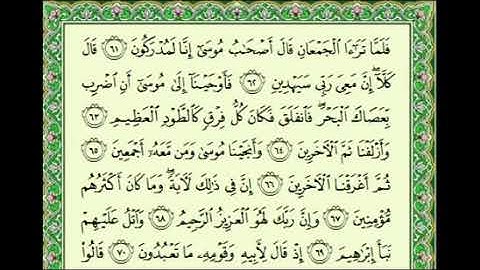 فَلَمَّا تَرَٰٓءَا ٱلْجَمْعَانِ قَالَ أَصْحَٰبُ مُوسَىٰٓ إِنَّا لَمُدْرَكُونَ ٦١ قَالَ
كَلَّآ ۖ إِنَّ مَعِىَ رَبِّى سَيَهْدِينِ ٦٢ فَأَوْحَيْنَآ إِلَىٰ مُوسَىٰٓ أَنِ ٱضْرِب
بِّعَصَاكَ ٱلْبَحْرَ ۖ فَٱنفَلَقَ فَكَانَ كُلُّ فِرْقٍ كَٱلطَّوْدِ ٱلْعَظِيمِ ٦٣
وَأَزْلَفْنَا ثَمَّ ٱلْءَاخَرِينَ ٦٤ وَأَنجَيْنَا مُوسَىٰ وَمَن مَّعَهُۥٓ أَجْمَعِينَ ٦٥
ثُمَّ أَغْرَقْنَا ٱلْءَاخَرِينَ ٦٦ إِنَّ فِى ذَٰلِكَ لَءَايَةً ۖ وَمَا كَانَ أَكْثَرُهُم
مُّؤْمِنِينَ ٦٧ وَإِنَّ رَبَّكَ لَهُوَ ٱلْعَزِيزُ ٱلرَّحِيمُ ٦٨ وَٱتْلُ عَلَيْهِمْ
نَبَأَ إِبْرَٰهِيمَ ٦٩ إِذْ قَالَ لِأَبِيهِ وَقَوْمِهِۦ مَا تَعْبُدُونَ ٧٠ قَالُوا۟